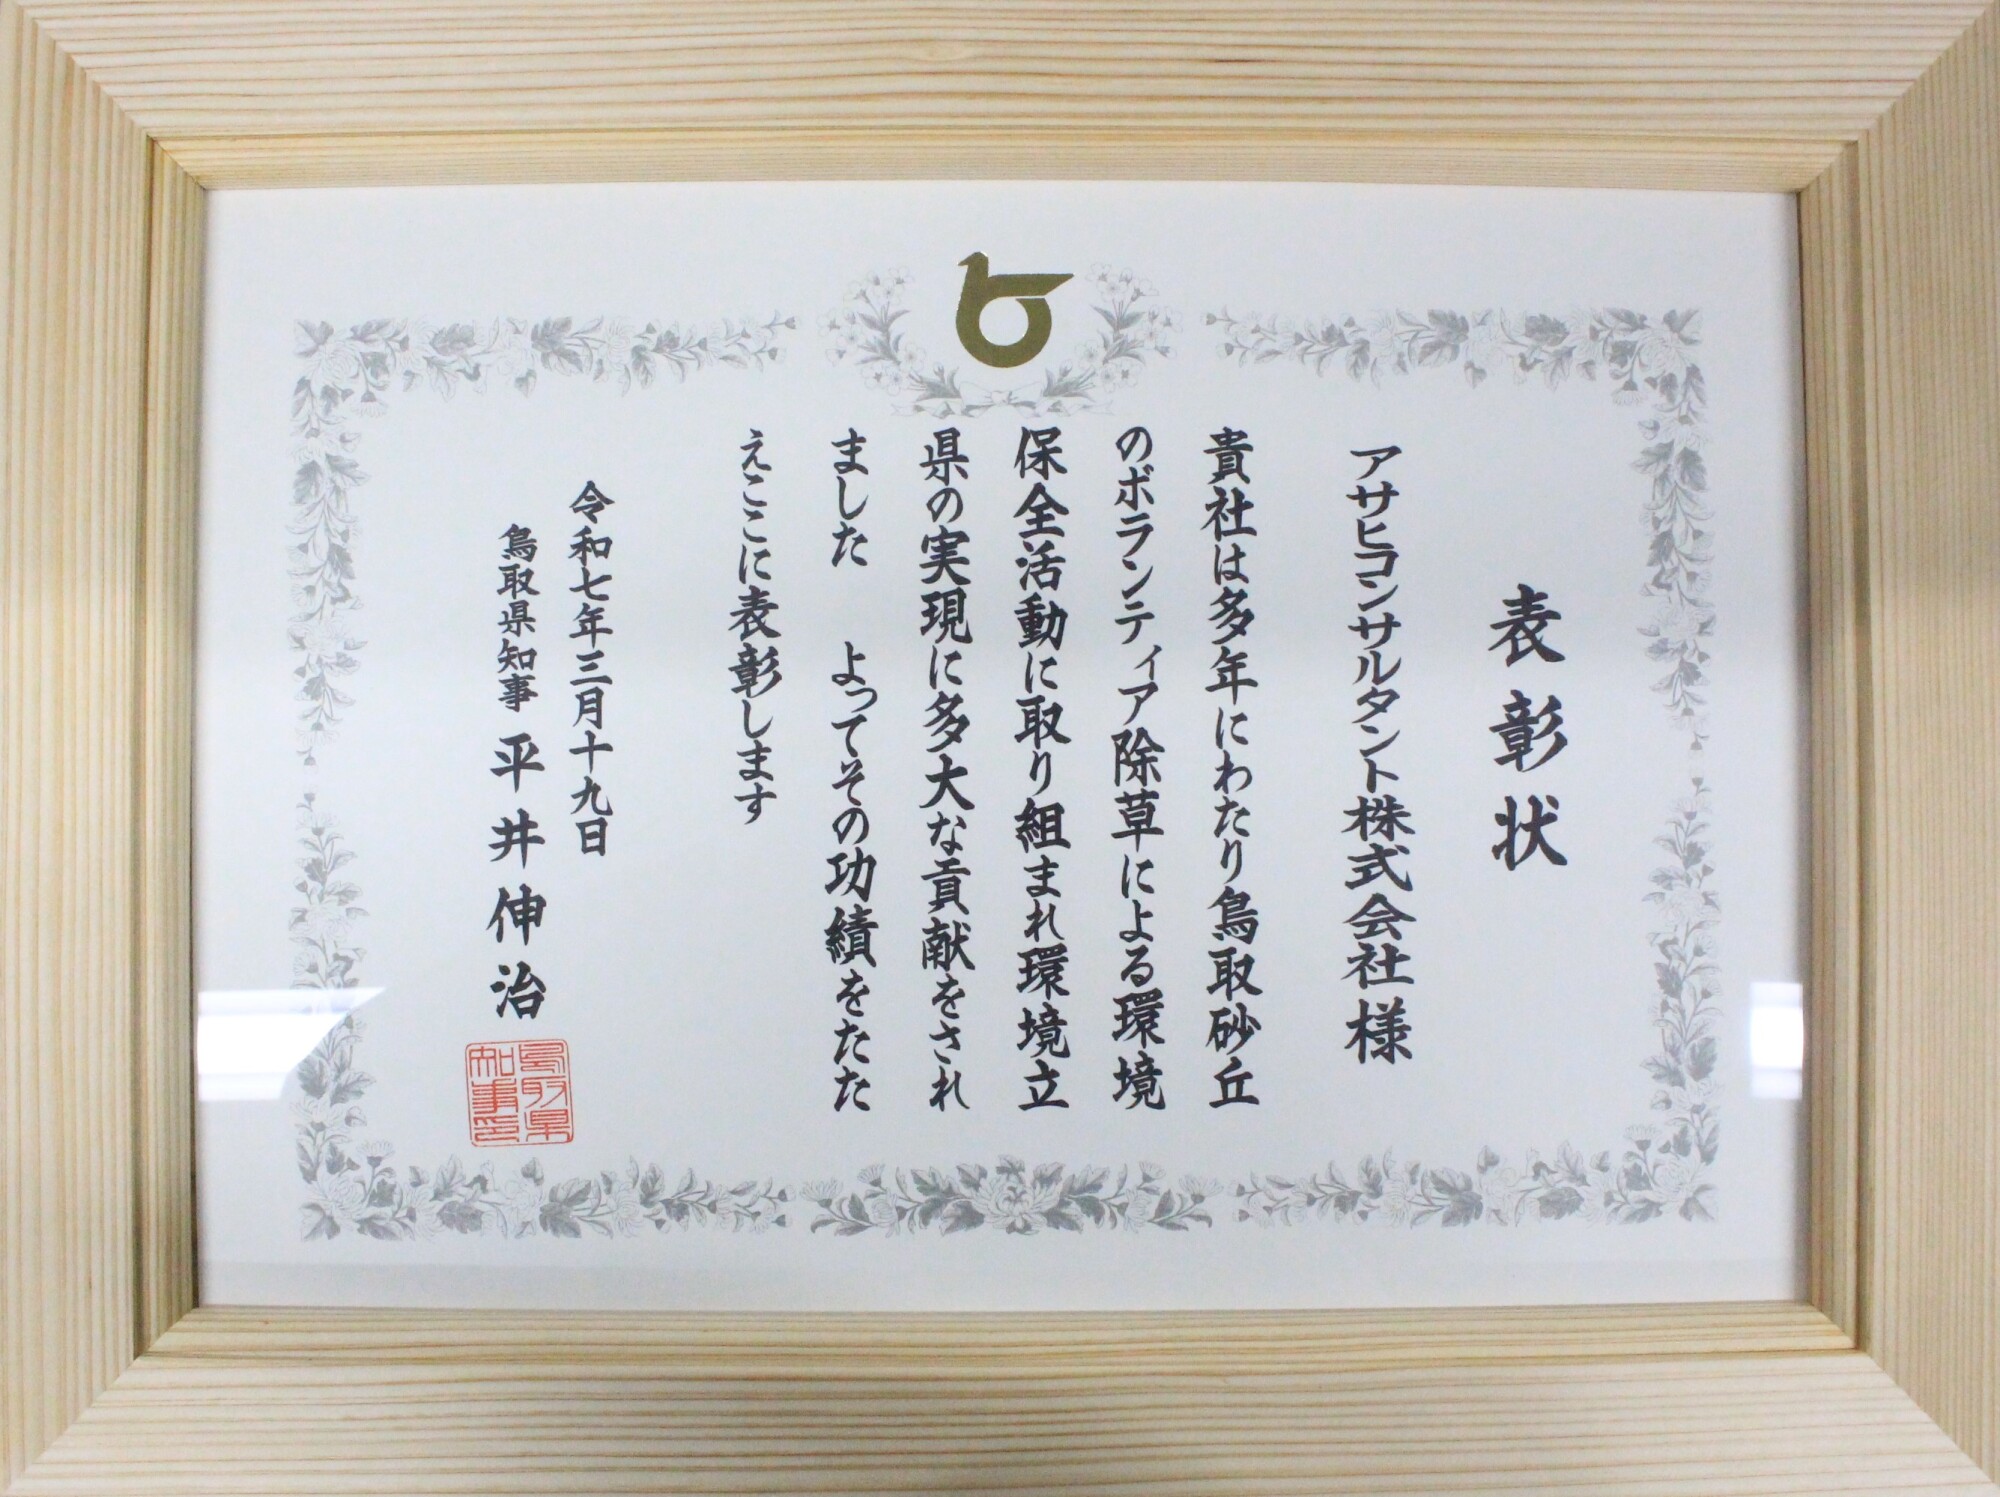 表彰状
アサヒコンサルタント株式会社様
貴社は多年にわたり鳥取砂丘
のボランティア除草による環境
保全活動に取り組まれ環境立
県の実現に多大な貢献をされ
ました　よってその功績をたた
えここに表彰します
令和七年三月十九日
鳥取県知事 平井伸治
鳥取県
知事印